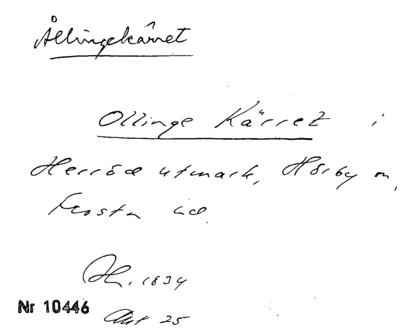 Ållingekärret
Ollinge Kärret i
Herröd utmark, Hörby sn,
Frosta hd.
Ä. 1834
Nr 10446
Akt 25